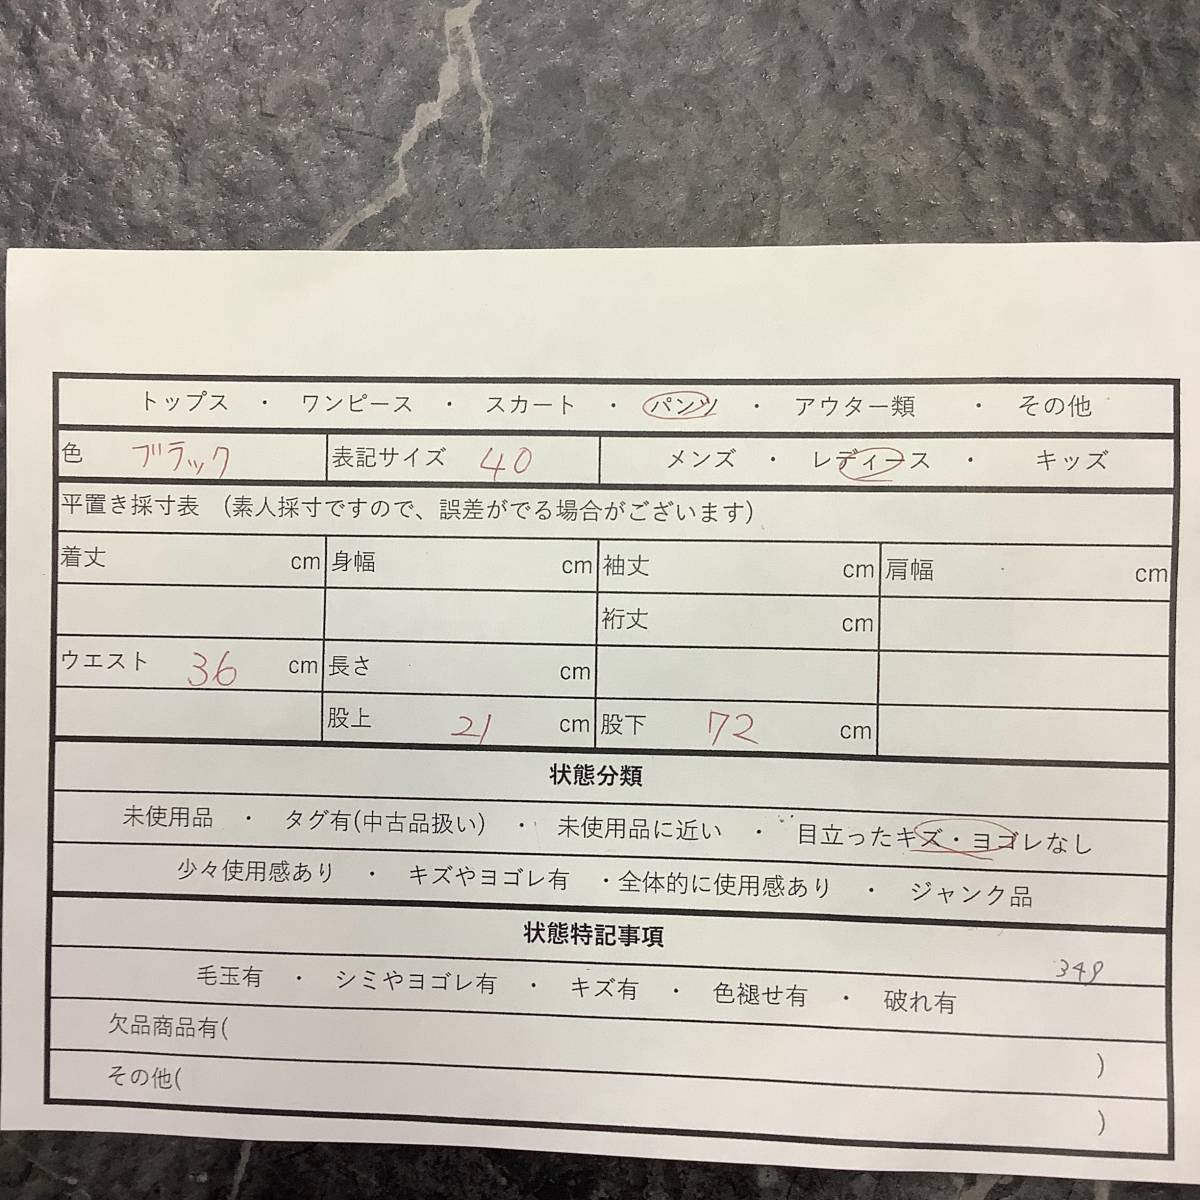 トップス ・ ワンピース ・ スカート ・ パンツ ・ アウター類 ・ その他
色 ブラック 表記サイズ 40 メンズ ・ レディース ・ キッズ
平置き採寸表 （素人採寸ですので、誤差がでる場合がございます）
着丈 cm 身幅 cm 袖丈 cm 肩幅 cm
裄丈 cm
ウエスト 36 cm 長さ cm
股上 21 cm 股下 72 cm
状態分類
未使用品 ・ タグ有(中古品扱い) ・ 未使用品に近い ・ 目立ったキズ・ヨゴレなし
少々使用感あり ・ キズやヨゴレ有 ・全体的に使用感あり ・ ジャンク品
状態特記事項
349
毛玉有 ・ シミやヨゴレ有 ・ キズ有 ・ 色褪せ有 ・ 破れ有
欠品商品有( )
その他( )